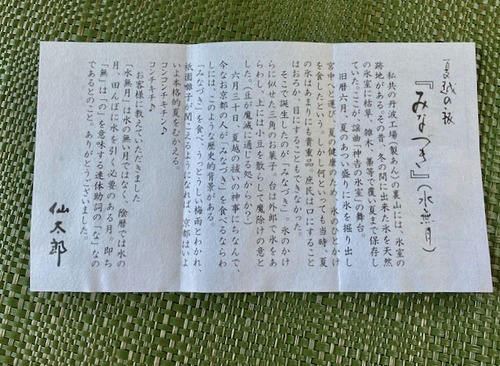 夏越の祓
『みなつき』(水無月)
私共の丹波工場(製あん)の裏山には、氷室の
跡地がある。その昔、冬の間に出来た氷を天然
の氷室に枯草、雑木、藁等で覆い夏まで保存し
ていた。ここが、謡曲「神吉の氷室」の舞台。
旧暦六月、夏のあつい盛りに氷を掘り出し
宮中へと運び、夏の健康のため、氷のひとかけ
を食したという。しかし何といっても当時、夏
の氷はあまりにも貴重品。庶民は口にすること
はおろか、目にすることもできなかった。
そこで誕生したのが「みなづき」。氷のかけ
らに似せた三角のお菓子。台は外郎で氷をあ
らわし、上には小豆を散らして魔除けの意と
した。(豆が魔滅に通じる処からか?)
六月三十日、夏越の祓いの神事にちなんで、
今なお京都の人が、「みなづき」を食べるならわ
しには、このような歴史的背景がある。
「みなづき」を食べ、うっとうしい梅雨とわかれ、
祇園囃子が聞こえるようになれば、京都はいよ
いよ本格的夏をむかえる。
コンコンチキチン♪
コンチキチン♪
お客様に教えていただきました
「水無月」は水の無い月でなく、陰暦では水の
月、田んぼに水を引く必要のある月、即ち
「無」は「の」を意味する連体助詞の「な」なの
であるとのこと。ありがとうございました。
仙太郎